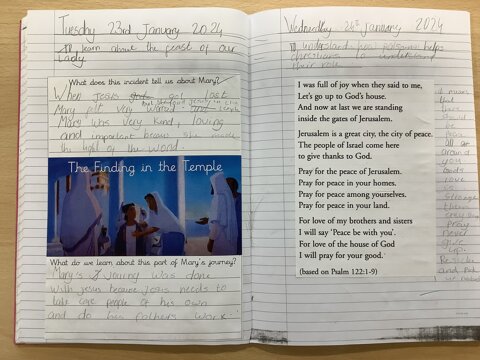 Tuesday 23rd January 2024
to learn about the feast of our
Lady.
What does this incident tell us about Mary?
When Jesus got lost
Mary felt very worried
Mary was very kind, loving
and important because she made
the light of the world.
The Finding in the Temple
What do we learn about this part of Mary's journey?
Mary's journg was done
with jesus because jesus needs to
take care people of his own
and do his fathers work.
Wednesday 24th January 2024
to understand how pilgrims helps
christians to understand
their role
I was full of joy when they said to me,
Let's go up to God's house.
And now at last we are standing
inside the gates of Jerusalem.
Jerusalem is a great city, the city of peace.
The people of Israel come here
to give thanks to God.
Pray for the peace of Jerusalem.
Pray for peace in your homes.
Pray for peace among yourselves.
Pray for peace in your land.
For love of my brothers and sisters
I will say 'Peace be with you'.
For love of the house of God
I will pray for your good.
(based on Psalm 122:1-9)
it means
that
should
be
all
around
you
gods
love
is
pray
never
give
up.